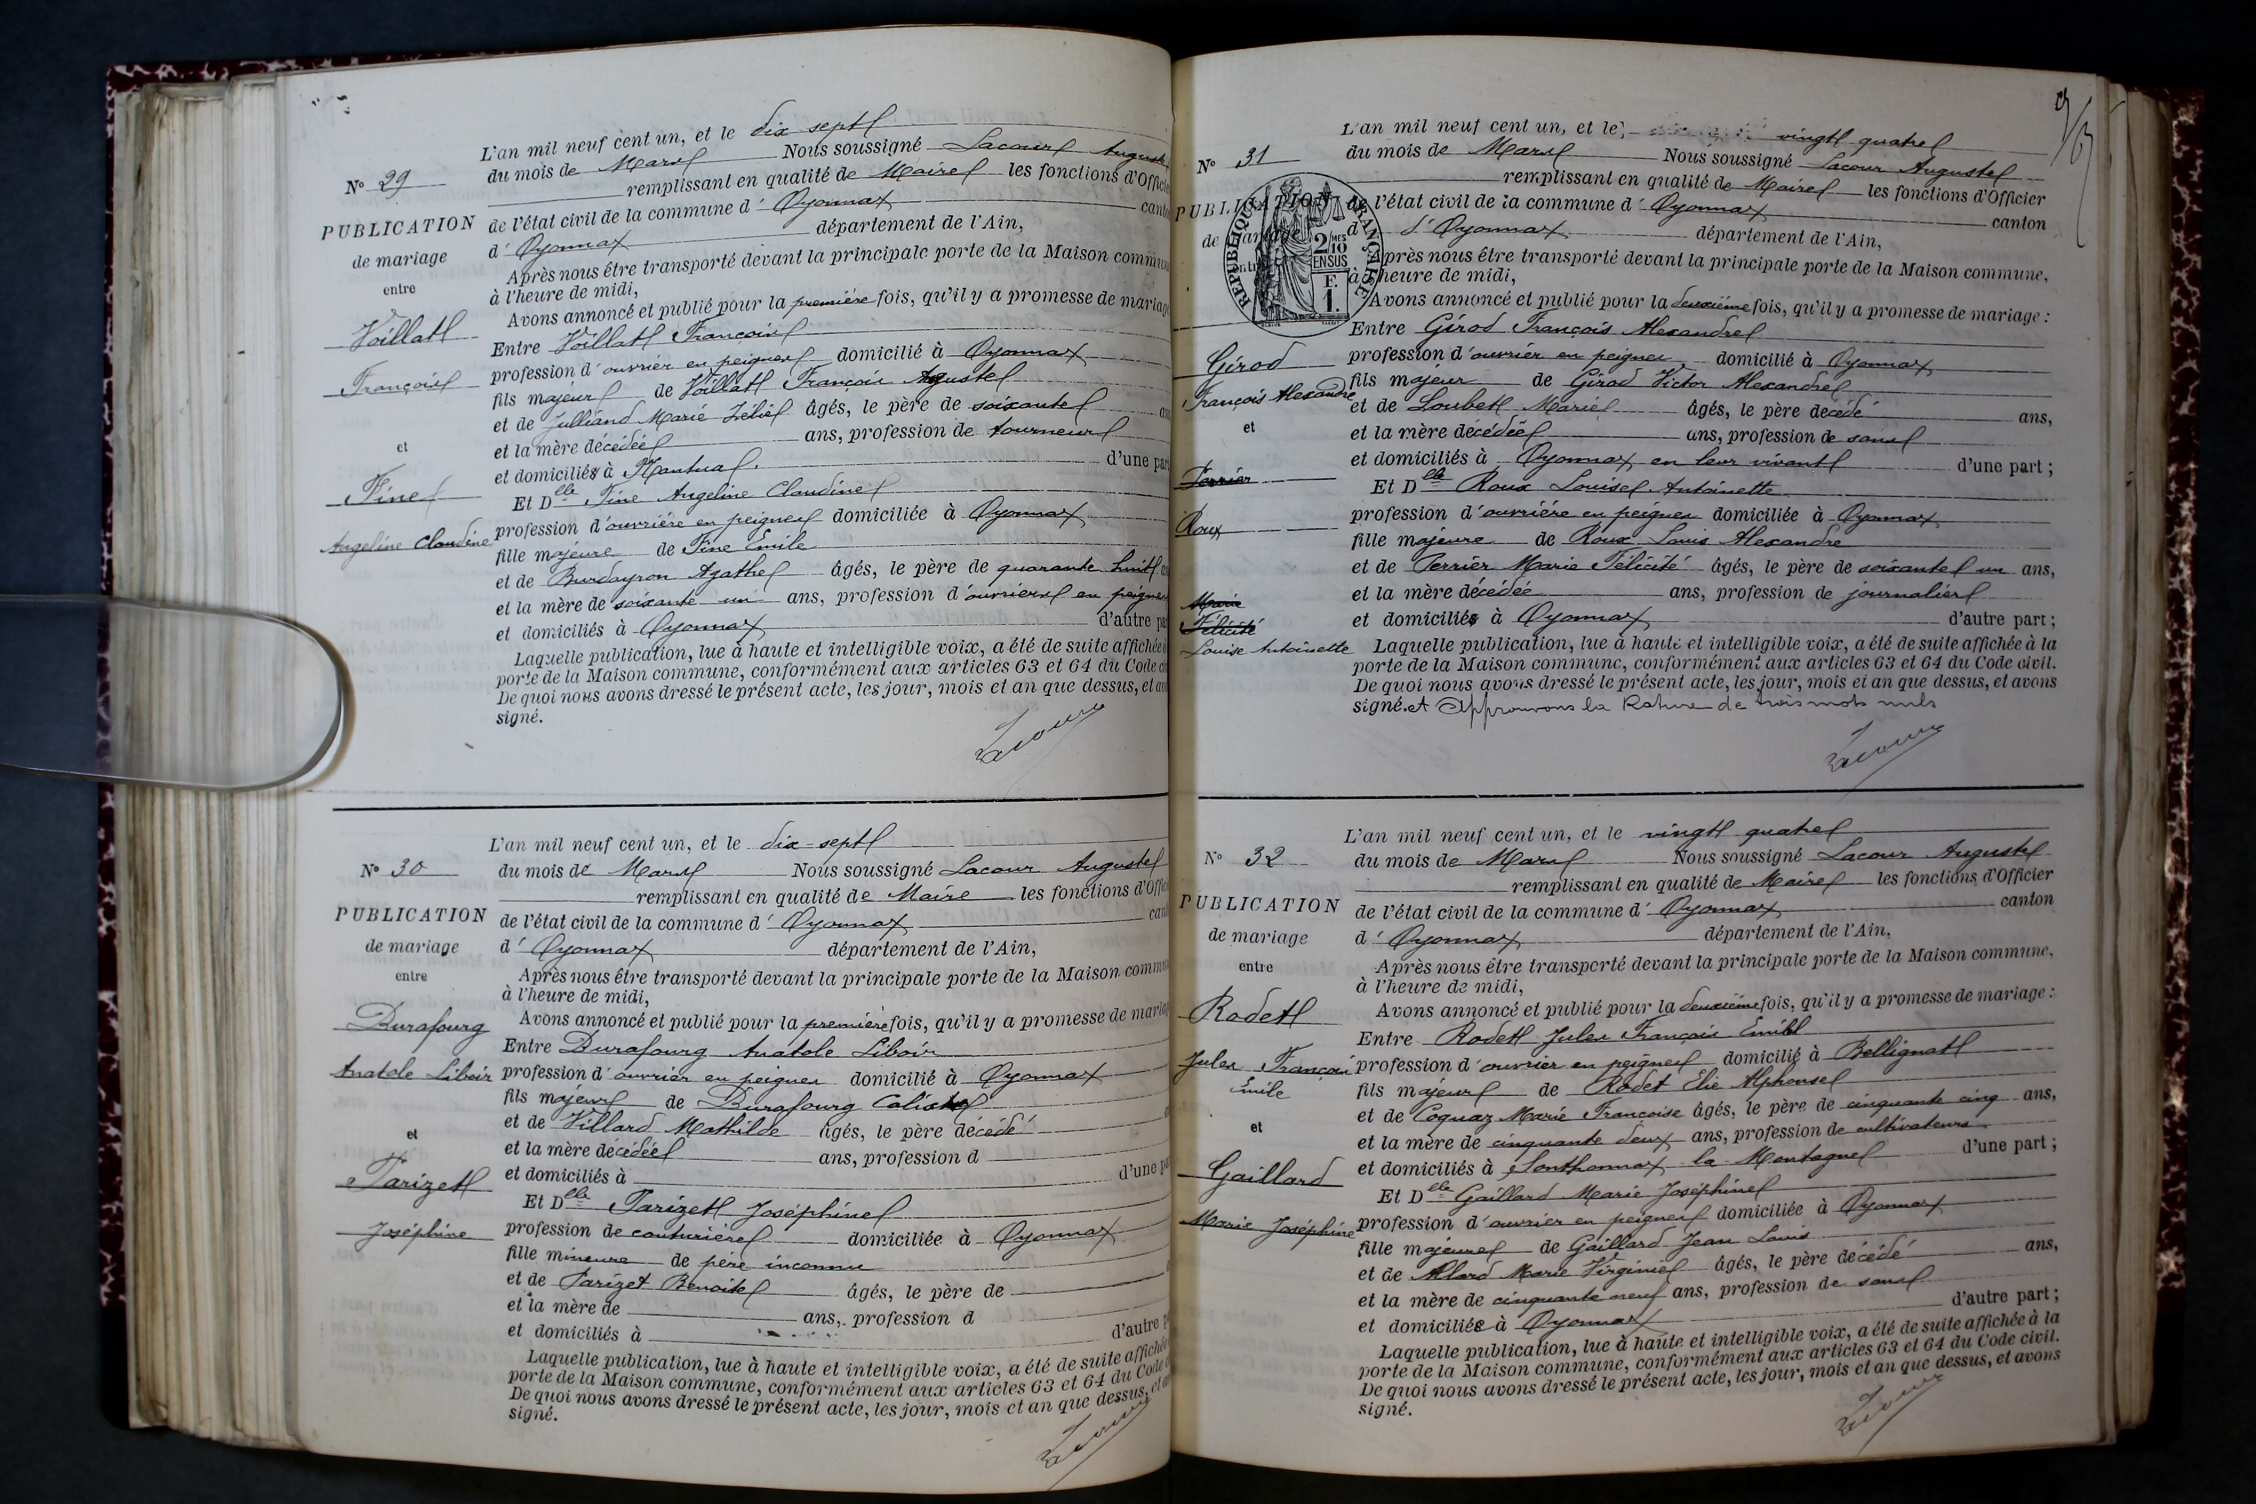 N° 29
PUBLICATION
de mariage
entre
Voillat
François
et
Fine
Angeline Claudine
L'an mil neuf cent un, et le dix sept
du mois de Mars Nous soussigné Lacour Auguste
remplissant en qualité de Maire les fonctions d'Officie
de l'état civil de la commune d' Oyonnax canto
d' Oyonnax département de l'Ain,
Après nous être transporté devant la principale porte de la Maison commun
à l'heure de midi,
Avons annoncé et publié pour la première fois, qu'il y a promesse de mariage
Entre Voillat François
profession d'ouvrier en peignes domicilié à Oyonnax
fils majeur de Voillat François Auguste
et de Julliand Marie Zélie âgés, le père de soixante an
et la mère décédée ans, profession de tourneur
et domiciliés à Nantua d'une par
Et Dlle Fine Angeline Claudine
profession d'ouvrière en peignes domiciliée à Oyonnax
fille majeure de Fine Emile
et de Burdayron Agathe âgés, le père de quarante huit
et la mère de soixante un ans, profession d'ouvriers en peignes
et domiciliés à Oyonnax d'autre pa
Laquelle publication, lue à haute et intelligible voix, a été de suite affichée
porte de la Maison commune, conformément aux articles 63 et 64 du Code c
De quoi nous avons dressé le présent acte, les jour, mois et an que dessus, et av
signé.
Lacour
N° 30
PUBLICATION
de mariage
entre
Durafourg
Anatole Liboir
et
Tarizet
Joséphine
L'an mil neuf cent un, et le dix-sept
du mois de Mars Nous soussigné Lacour Auguste
remplissant en qualité de Maire les fonctions d'Offic
de l'état civil de la commune d' Oyonnax cant
d' Oyonnax département de l'Ain,
Après nous être transporté devant la principale porte de la Maison commu
à l'heure de midi,
Avons annoncé et publié pour la première fois, qu'il y a promesse de mariag
Entre Durafourg Anatole Liboir
profession d'ouvrier en peignes domicilié à Oyonnax
fils majeur de Durafourg Calixte
et de Villard Mathilde âgés, le père décédé
et la mère décédée ans, profession d
et domiciliés à d'une pa
Et Dlle Tarizet Joséphine
profession de couturière domiciliée à Oyonnax
fille mineure de père inconnu
et de Tarizet Benoite âgés, le père de
et la mère de ans, profession d
et domiciliés à d'autre p
Laquelle publication, lue à haute et intelligible voix, a été de suite affichée
porte de la Maison commune, conformément aux articles 63 et 64 du Code
De quoi nous avons dressé le présent acte, les jour, mois et an que dessus, et
signé.
Lacour
N° 31
PUBLICATION
de mariage
entre
RÉPUBLIQUE FRANÇAISE
2/10 MES
EN SUS
F.
1.
Girod
François Alexandre
et
Perrier
Roux
Marie
Félicité
Louise Antoinette
L'an mil neuf cent un, et le vingt quatre
du mois de Mars Nous soussigné Lacour Auguste
remplissant en qualité de Maire les fonctions d'Officier
de l'état civil de la commune d' Oyonnax canton
d d'Oyonnax département de l'Ain,
Après nous être transporté devant la principale porte de la Maison commune,
à l'heure de midi,
Avons annoncé et publié pour la deuxième fois, qu'il y a promesse de mariage :
Entre Girod François Alexandre
profession d'ouvrier en peignes domicilié à Oyonnax
fils majeur de Girod Victor Alexandre
et de Loubet Marie âgés, le père décédé ans,
et la mère décédée ans, profession de sans
et domiciliés à Oyonnax en leur vivant d'une part ;
Et Dlle Roux Louise Antoinette
profession d'ouvrière en peignes domiciliée à Oyonnax
fille majeure de Roux Louis Alexandre
et de Perrier Marie Félicité âgés, le père de soixante un ans,
et la mère décédée ans, profession de journalier
et domiciliés à Oyonnax d'autre part ;
Laquelle publication, lue à haute et intelligible voix, a été de suite affichée à la
porte de la Maison commune, conformément aux articles 63 et 64 du Code civil.
De quoi nous avons dressé le présent acte, les jour, mois et an que dessus, et avons
signé. et Approuvons la Rature de trois mots nuls
Lacour
N° 32
PUBLICATION
de mariage
entre
Rodet
Jules François
Emile
et
Gaillard
Marie Joséphine
L'an mil neuf cent un, et le vingt quatre
du mois de Mars Nous soussigné Lacour Auguste
remplissant en qualité de Maire les fonctions d'Officier
de l'état civil de la commune d' Oyonnax canton
d' Oyonnax département de l'Ain,
Après nous être transporté devant la principale porte de la Maison commune,
à l'heure de midi,
Avons annoncé et publié pour la deuxième fois, qu'il y a promesse de mariage :
Entre Rodet Jules François Emile
profession d'ouvrier en peignes domicilié à Bellignat
fils majeur de Rodet Elie Alphonse
et de Coquaz Marie Françoise âgés, le père de cinquante cinq ans,
et la mère de cinquante deux ans, profession de cultivateurs
et domiciliés à Sonthonnax la Montagne d'une part ;
Et Dlle Gaillard Marie Joséphine
profession d'ouvrier en peignes domiciliée à Oyonnax
fille majeure de Gaillard Jean Louis
et de Allard Marie Virginie âgés, le père décédé ans,
et la mère de cinquante neuf ans, profession de sans
et domiciliés à Oyonnax d'autre part ;
Laquelle publication, lue à haute et intelligible voix, a été de suite affichée à la
porte de la Maison commune, conformément aux articles 63 et 64 du Code civil.
De quoi nous avons dressé le présent acte, les jour, mois et an que dessus, et avons
signé.
Lacour